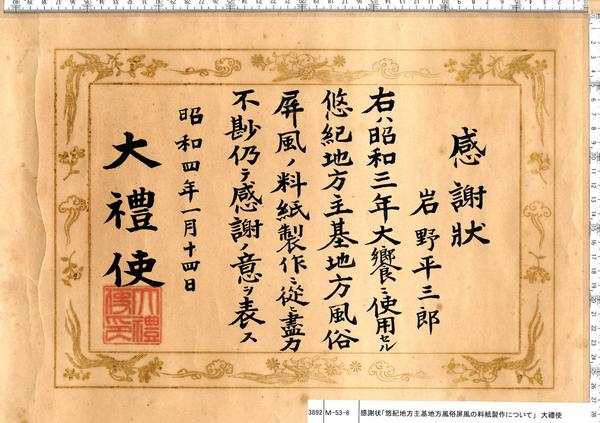 感謝狀
岩野平三郎
右ハ昭和三年大饗ニ使用セル
悠紀地方主基地方風俗
屏風ノ料紙製作ニ從ヒ盡力
不尠仍テ感謝ノ意ヲ表ス
昭和四年一月十四日
大禮使
大禮使印
3892 M-53-6 感謝状「悠紀地方主基地方風俗屏風の料紙製作について」 大禮使